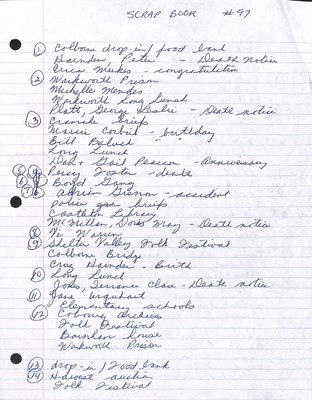 SCRAP BOOK #97
① Colborne drop-in/food bank
Peter - Death notice
Erica Meekes - congratulation
② Warkworth Prison
Michelle Mendes
Warkworth Long Lunch
Platt, George Leslie - Death notice
③ Cramahe briefs
Marcie Corbiel - birthday
Bill
Long Lunch
Dan & Gail Pearson - Anniversary
Percy Foster - death
Boyd Gang
- accident
police gas briefs
Castleton Library
McMillan, Doris May - Death notice
⑧ Vi Warren
⑨ Shelter Valley Folk Festival
Colborne Bridge
Cruz - Birth
10 Long Lunch
Jones, Terrance Clare - Death notice
⑪ Jane Urquhart
Elementary schools
⑫ Cobourg archives
Folk Festival
Barnlam House
Warkworth Prison
⑬ drop-in/Food bank
⑭ Harvest auction
Folk Festival